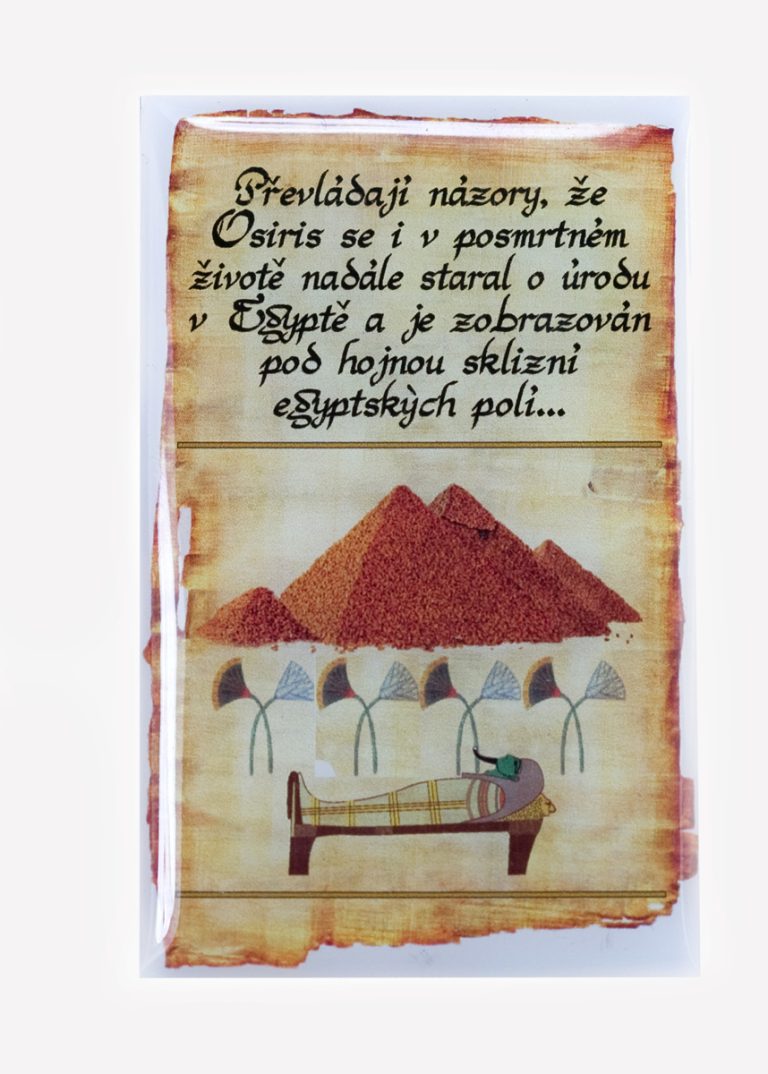 Převládají názory, že
Osiris se i v posmrtném
životě nadále staral o úrodu
v Egyptě a je zobrazován
pod hojnou sklizní
egyptských polí...